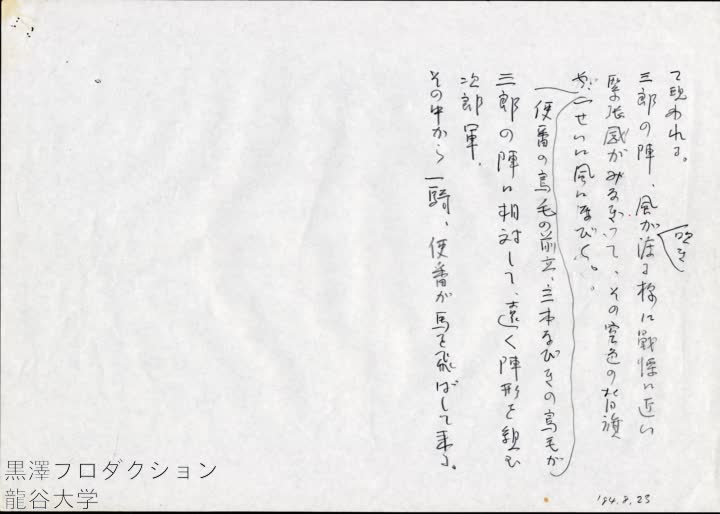 て現われる。
三郎の陣、風が渡る様に戦慄に近い
吹き
緊張感がみなぎって、その空色の背旗
が一せいに風になびく。
使番の鳥毛の前立、三本なびきの鳥毛が
三郎の陣に相対して、遠く陣形を組む
次郎軍。
その中から一騎、使番が馬を飛ばして来る。
'84.8.23
黒澤プロダクション
龍谷大学